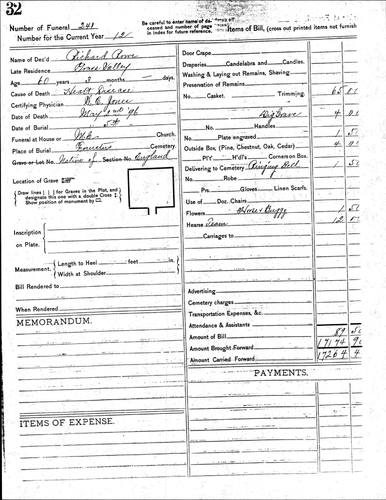 32
Number of Funeral 241
Number for the Current Year 12
Be carefull to enter name of de-
in index for future reference.
Items of Bill, (cross out printed items not furnish
Name of Dec'd Richard Rowe
Late Residence Grass Valley
Age 60 years 3 months days.
Cause of Death Heart Disease
Certifying Physician W.C. Jones
Date of Death May 2nd '96
Date of Burial 5th
Funeral at House or M.E. Church.
Place of Burial Cemetery.
Grave or Lot No. Native of Section No. England
Location of Grave
Draw lines for Graves in the Plot, and
designate this one with a double Cross
Show position of monument by
Inscription
on Plate.
Measurement. Length to Heel feet in.
Width at Shoulder
Bill Rendered to
When Rendered
MEMORANDUM.
ITEMS OF EXPENSE.
Door Crape
Draperies, Candelabra and Candles.
Washing & Laying out Remains, Shaving.
Preservation of Remains
No. Casket. Trimming. 65 00
Dig Grave 4 00
No. Handles
No. Plate engraved 1 50
Outside Box, (Pine, Chestnut, Oak, Cedar) 4 00
No. P'I'Y H'd's Corners on Box.
Delivering to Cemetery Ringing Bell 1 50
No. Robe
No. Prs. Gloves Linen Scarfs.
Use of Doz. Chairs
Flowers Horse & Buggy 1 50
Hearse Team 12 00
Carriages to
Advertising
Cemetery charges
Transportation Expenses, &c.
Attendance & Assistants
Amount of Bill 89 50
Amount Brought Forward 17174 90
Amount Carried Forward 17264 4
PAYMENTS.